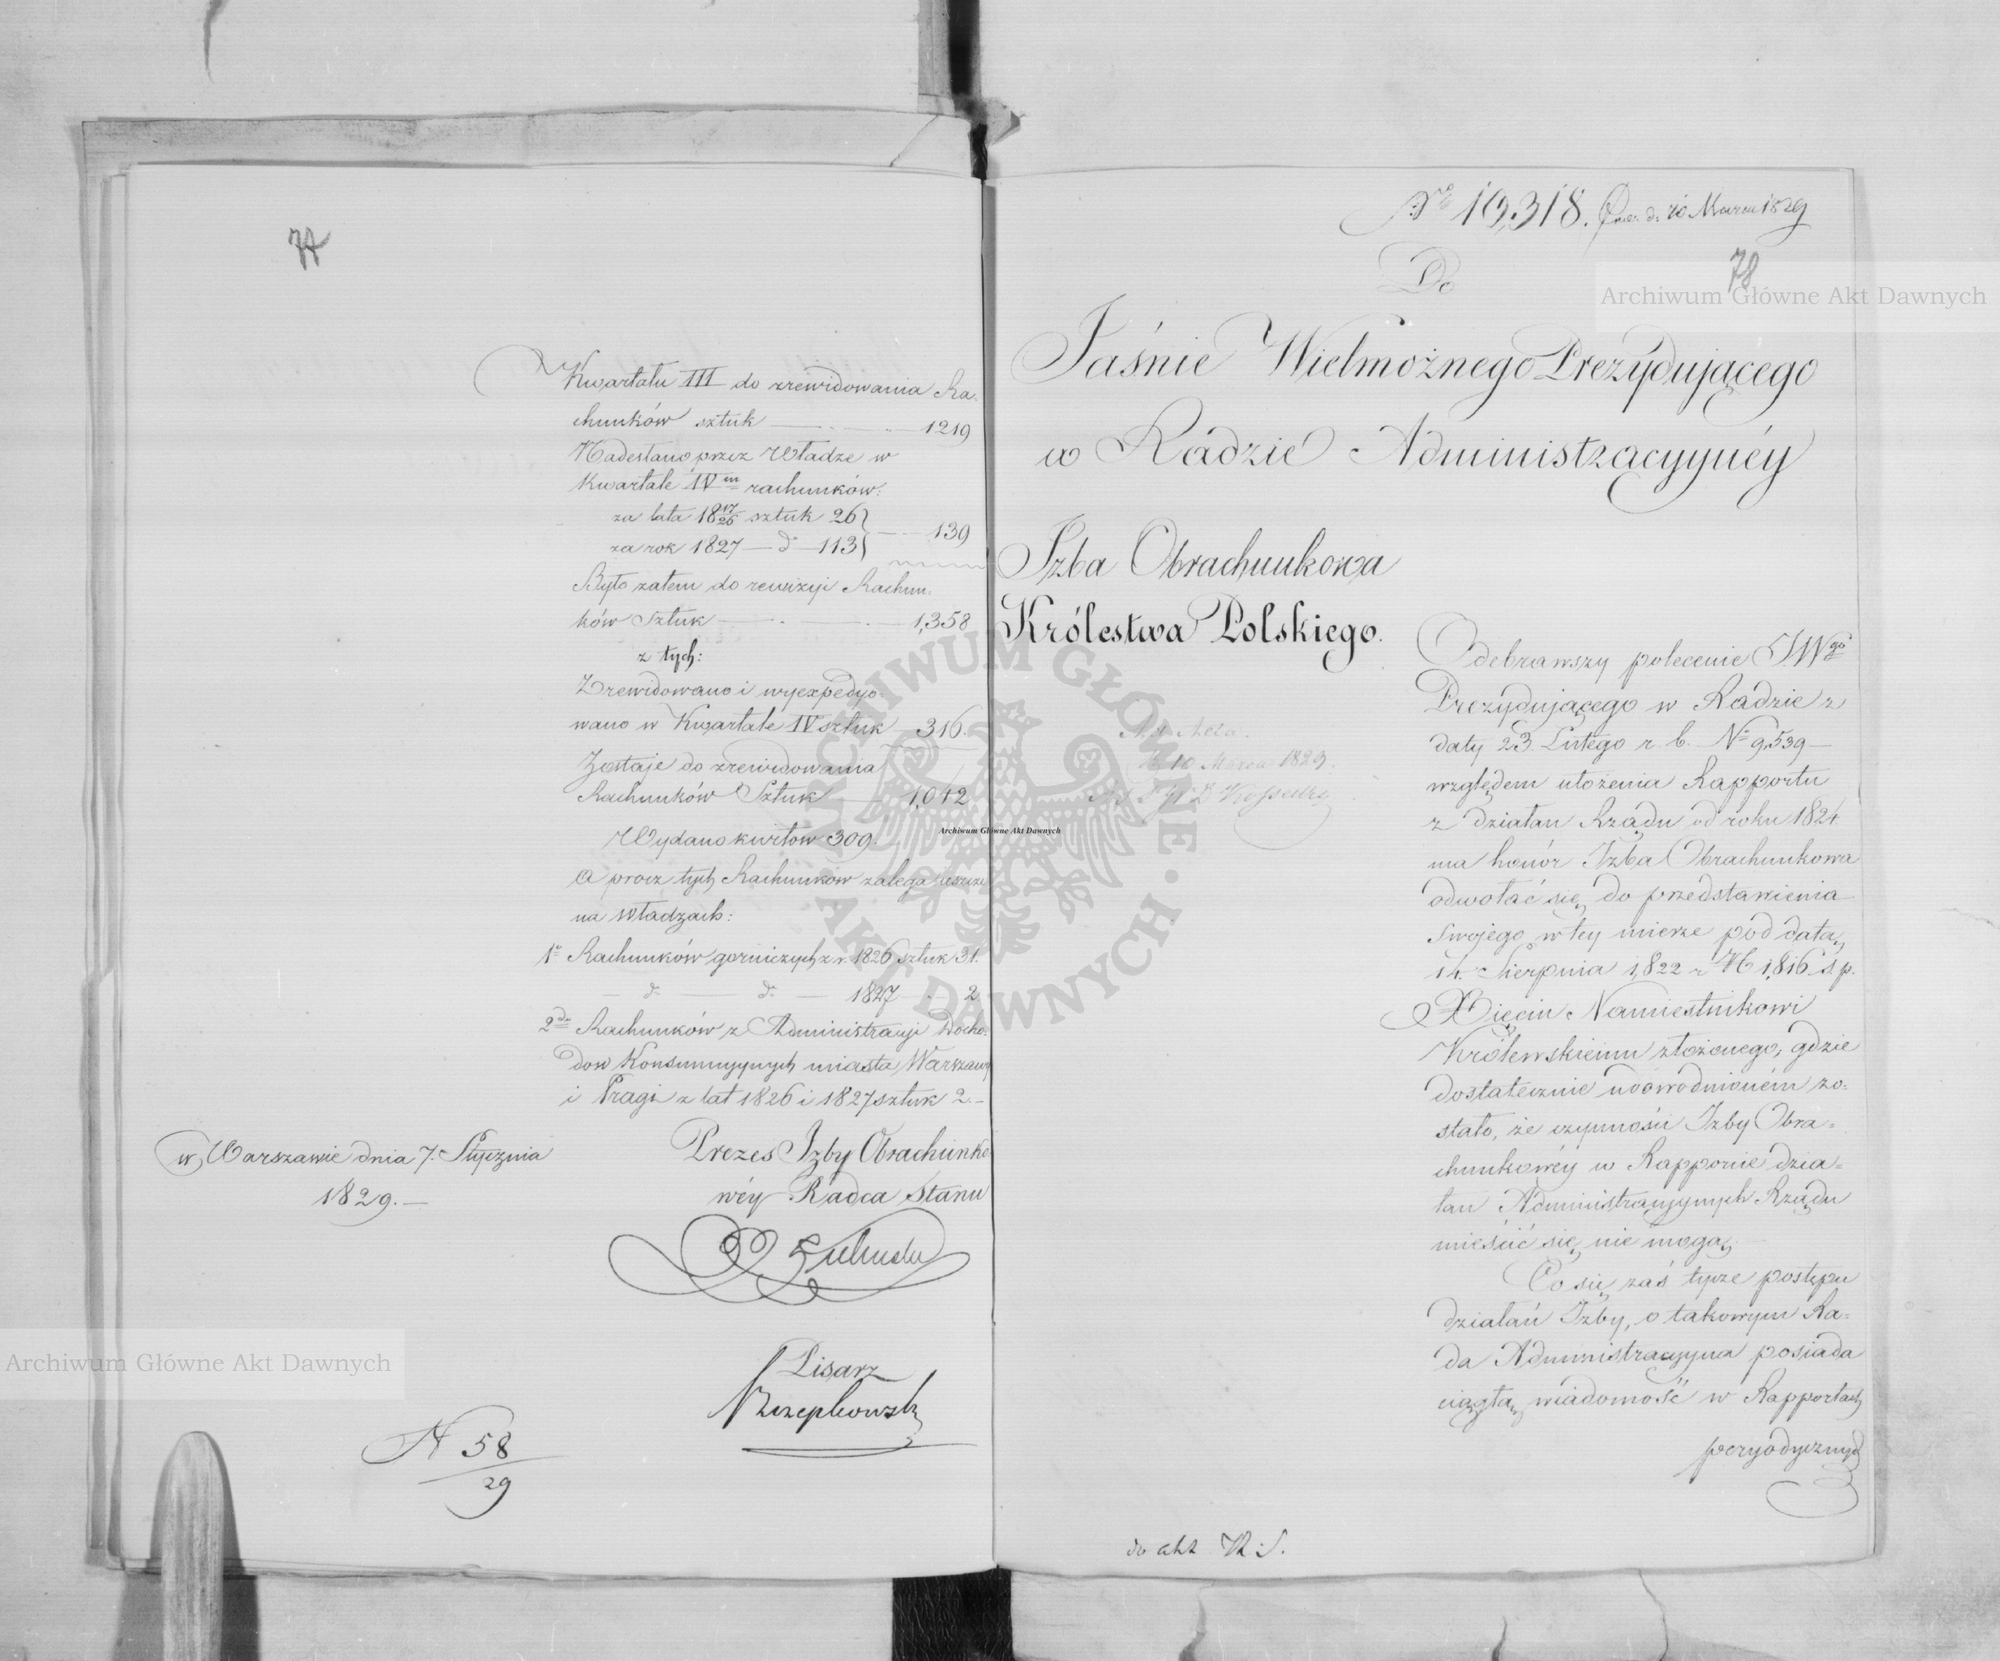 77
Kwartału III do zrewidowania Ra-
chunków sztuk 1219
Nadesłano przez Władze w
Kwartale IVm rachunków:
za lata 18 17/26 sztuk 26
za rok 1827 — do — 113 } 139
Było zatem do rewizyi Rachun-
ków Sztuk 1,358
z tych:
Zrewidowano i wyexpedyo-
wano w Kwartale IV sztuk 316.
Zostaje do zrewidowania
Rachunków Sztuk 1,042
Wydano kwitow 309.
O procz tych Rachunków zalega jeszcze
na Władzach:
1o Rachunków gorniczych z r. 1826 sztuk 31.
— do — do — 1827 — 2
2do Rachunków z Administracyi Docho-
dow Konsumcyynych miasta Warszawy
i Pragi z lat 1826 i 1827 sztuk 2.—
w Warszawie dnia 7. Stycznia
1829.—
Prezes Izby Obrachunko-
wéy Radca Stanu
Pisarz
Rzepkowski
N 58
29
No 10,318. d. 10 Marca 1829
78
Do
Jaśnie Wielmożnego Prezydującego
w Radzie Administracyynéy
Izba Obrachunkowa
Królestwa Polskiego.
Ad Acta.
d. 10 Marca 1829.
Odebrawszy polecenie JWgo
Prezydującego w Radzie z
daty 23. Lutego r. b. No 9,539—
względem ułożenia Rapportu
z działan Rządu od roku 1824
ma honór Izba Obrachunkowa
odwołać się do przedstawienia
swojego w tey mierze pod datą
14. Sierpnia 1,822 r N 1,816 ś. p.
Xięciu Namiestnikowi
Królewskiemu złożonego, gdzie
dostatecznie udowodnioném zo-
stało, że czynności Izby Obra-
chunkowéy w Rapporcie dzia-
łan Administracyynych Rządu
mieścić się nie mogą.
Co się zaś tycze postępu
działań Izby, o takowym Ra-
da Administracyyna posiada
ciągłą wiadomość w Rapportach
peryodycznych
do akt R. S.
Archiwum Główne Akt Dawnych
Archiwum Główne Akt Dawnych
Archiwum Główne Akt Dawnych
ARCHIWUM GŁÓWNE · AKT DAWNYCH ·